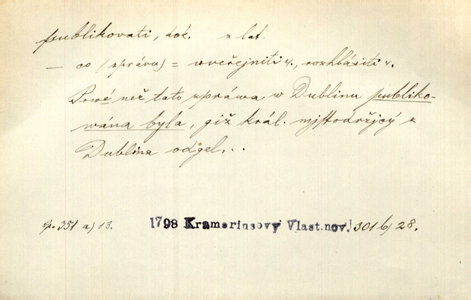 publikovati, dok. z lat.
— co (zpráva) = uveřejniti č., rozhlásiti č.
Prvé než tato zpráwa w Dublinu publiko-
wána byla, giž král. mjstodržjcý z
Dublina odgel,..
str. 351 a) 13. 1798 Krameriusovy Vlast.nov. 301 b) 28.